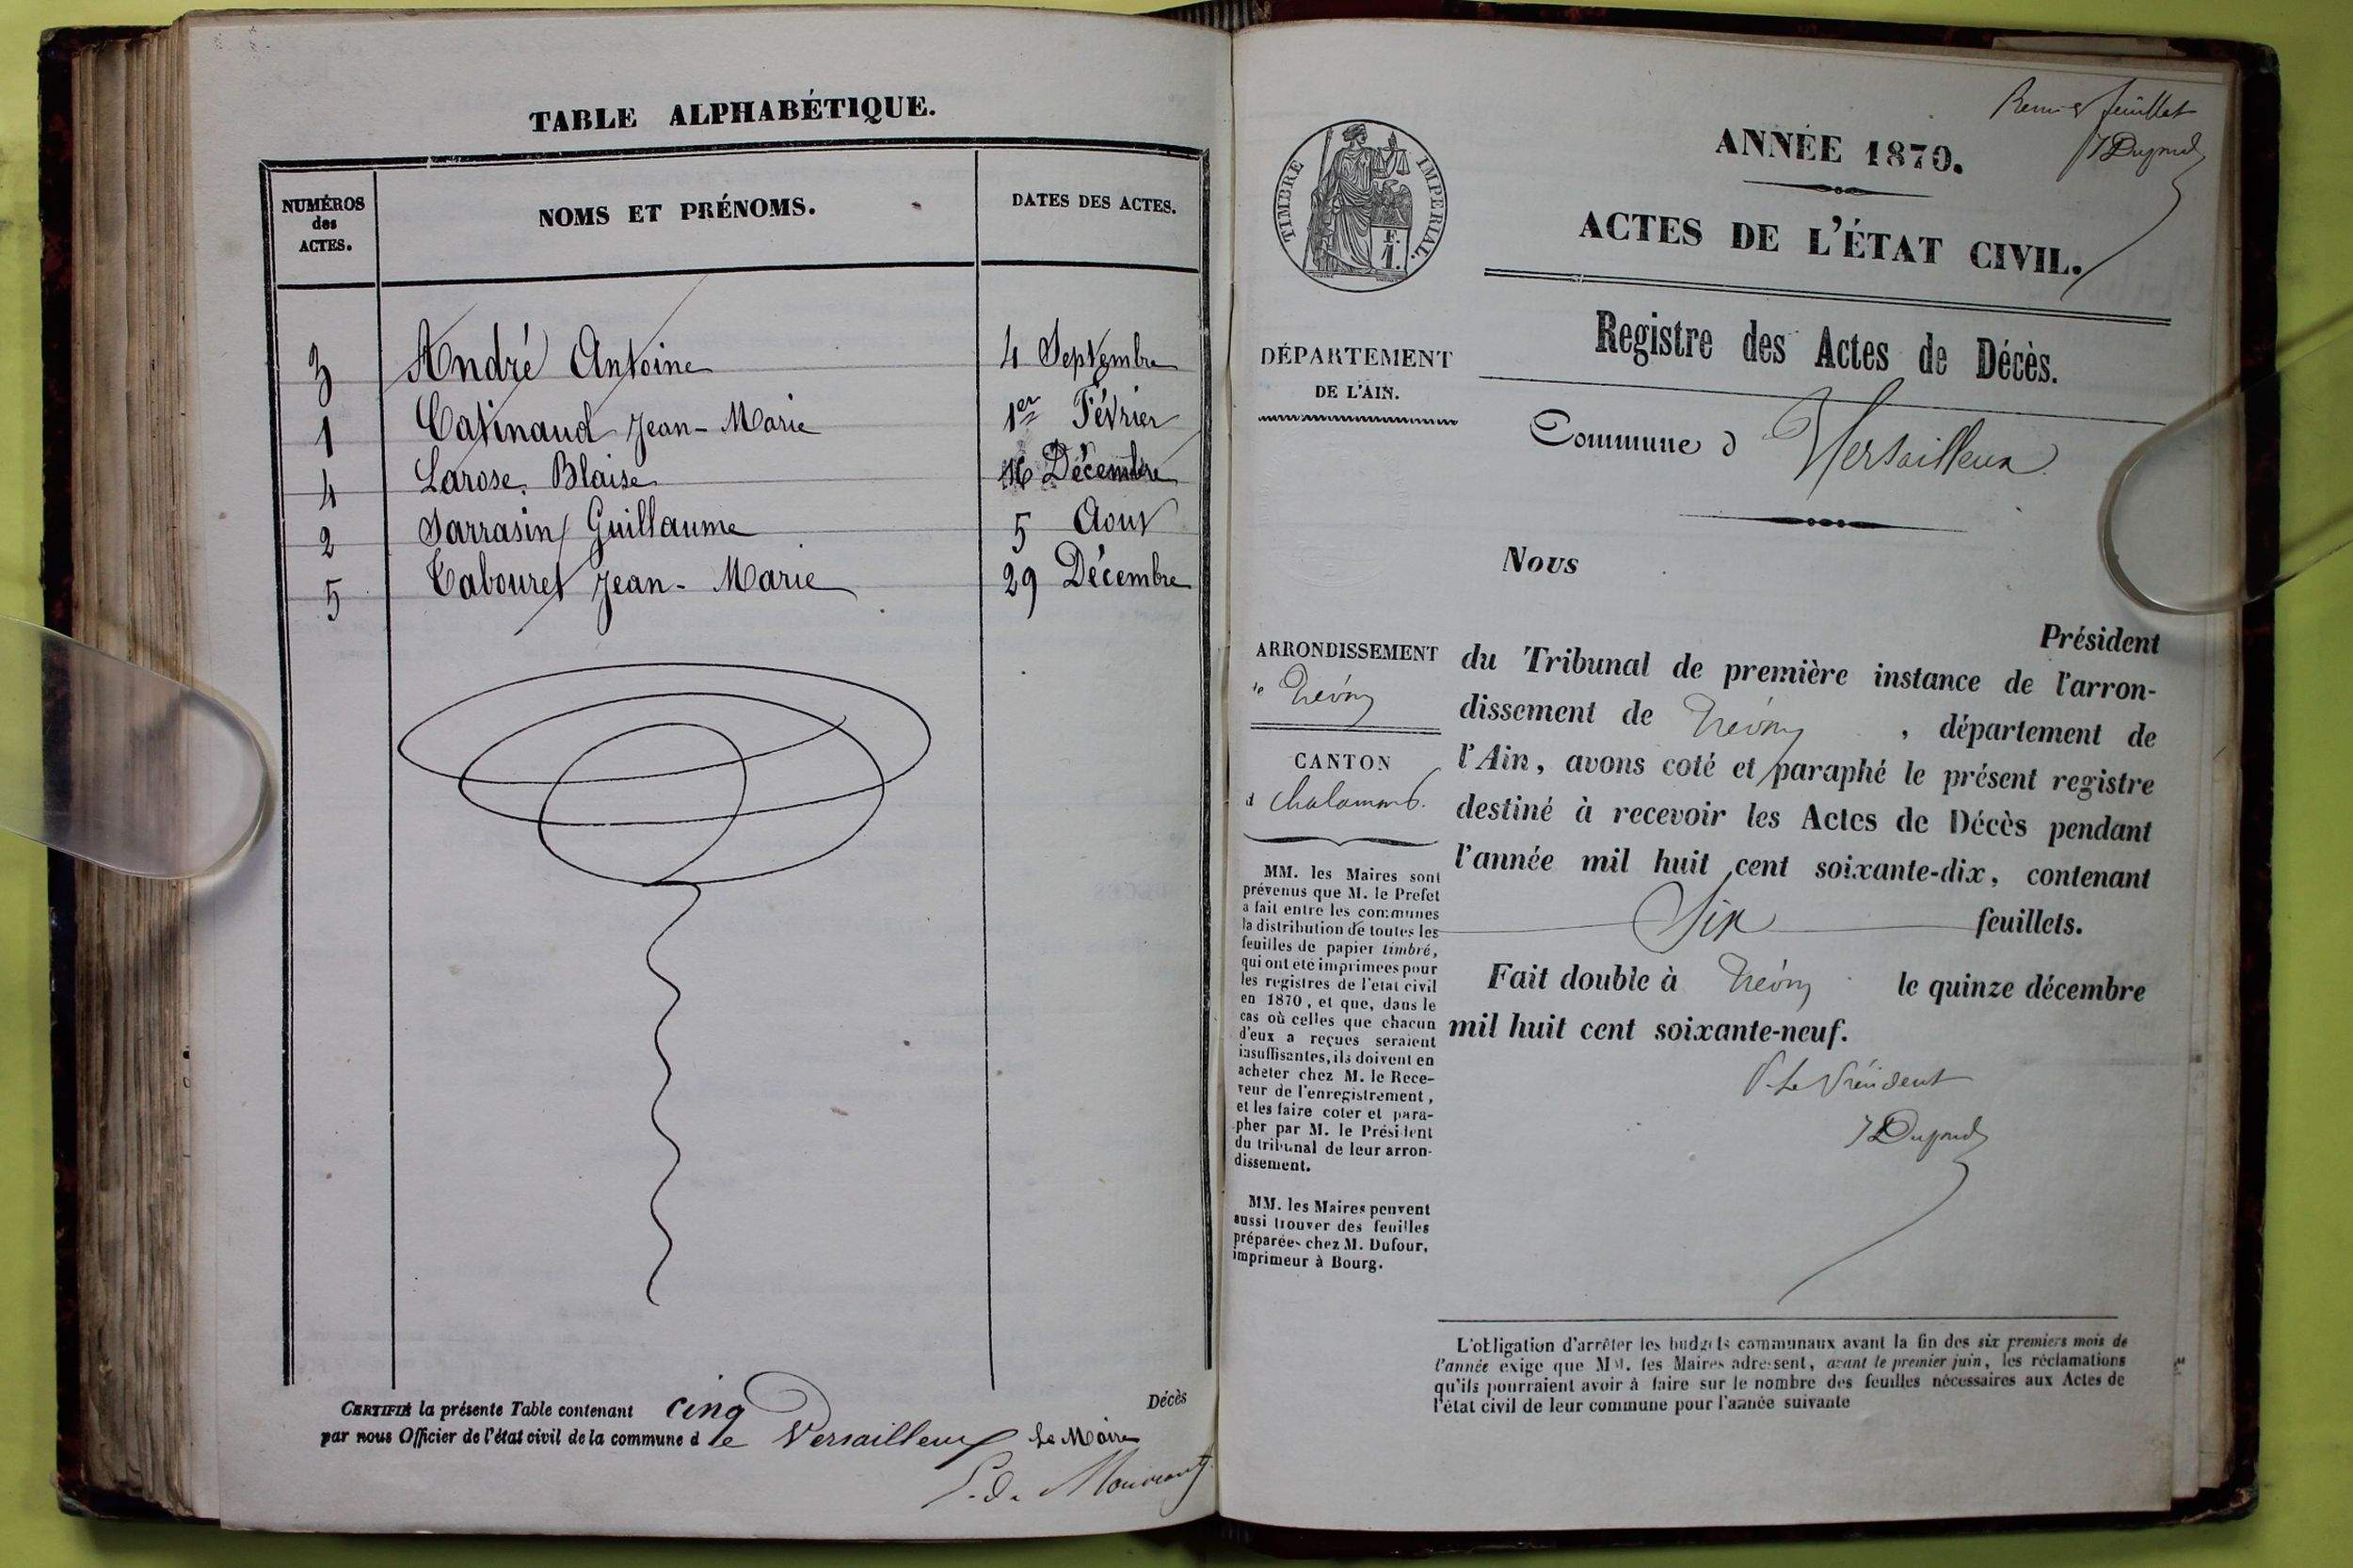 TABLE ALPHABÉTIQUE.
NUMÉROS
des
ACTES.
NOMS ET PRÉNOMS.
DATES DES ACTES.
3 André Antoine 4 Septembre
1 Catinaud Jean-Marie 1er Février
4 Larose Blaise 16 Décembre
2 Sarrasin Guillaume 5 Aout
5 Tabouret Jean-Marie 29 Décembre
CERTIFIÉ la présente Table contenant cinq Décès
par nous Officier de l'état civil de la commune de Versailleux Le Maire
Premier feuillet
ANNÉE 1870.
TIMBRE IMPERIAL.
F.
1.
ACTES DE L'ÉTAT CIVIL.
Registre des Actes de Décès.
DÉPARTEMENT
DE L'AIN.
Commune d Versailleux
Nous
Président
ARRONDISSEMENT
de Trévoux
CANTON
d Chalamont.
du Tribunal de première instance de l'arron-
dissement de Trévoux, département de
l'Ain, avons coté et paraphé le présent registre
destiné à recevoir les Actes de Décès pendant
l'année mil huit cent soixante-dix, contenant
Six feuillets.
Fait double à Trévoux le quinze décembre
mil huit cent soixante-neuf.
P. Le Président
MM. les Maires sont
prévenus que M. le Prefet
a fait entre les communes
la distribution de toutes les
feuilles de papier timbré,
qui ont été imprimees pour
les registres de l'etat civil
en 1870, et que, dans le
cas où celles que chacun
d'eux a reçues seraient
insuffisantes, ils doivent en
acheter chez M. le Rece-
veur de l'enregistrement,
et les faire coter et para-
pher par M. le Président
du tribunal de leur arron-
dissement.
MM. les Maires peuvent
aussi trouver des feuilles
préparées chez M. Dufour,
imprimeur à Bourg.
L'obligation d'arrêter les budgets communaux avant la fin des six premiers mois de
l'année exige que MM. les Maires adressent, avant le premier juin, les réclamations
qu'ils pourraient avoir à faire sur le nombre des feuilles nécessaires aux Actes de
l'état civil de leur commune pour l'année suivante